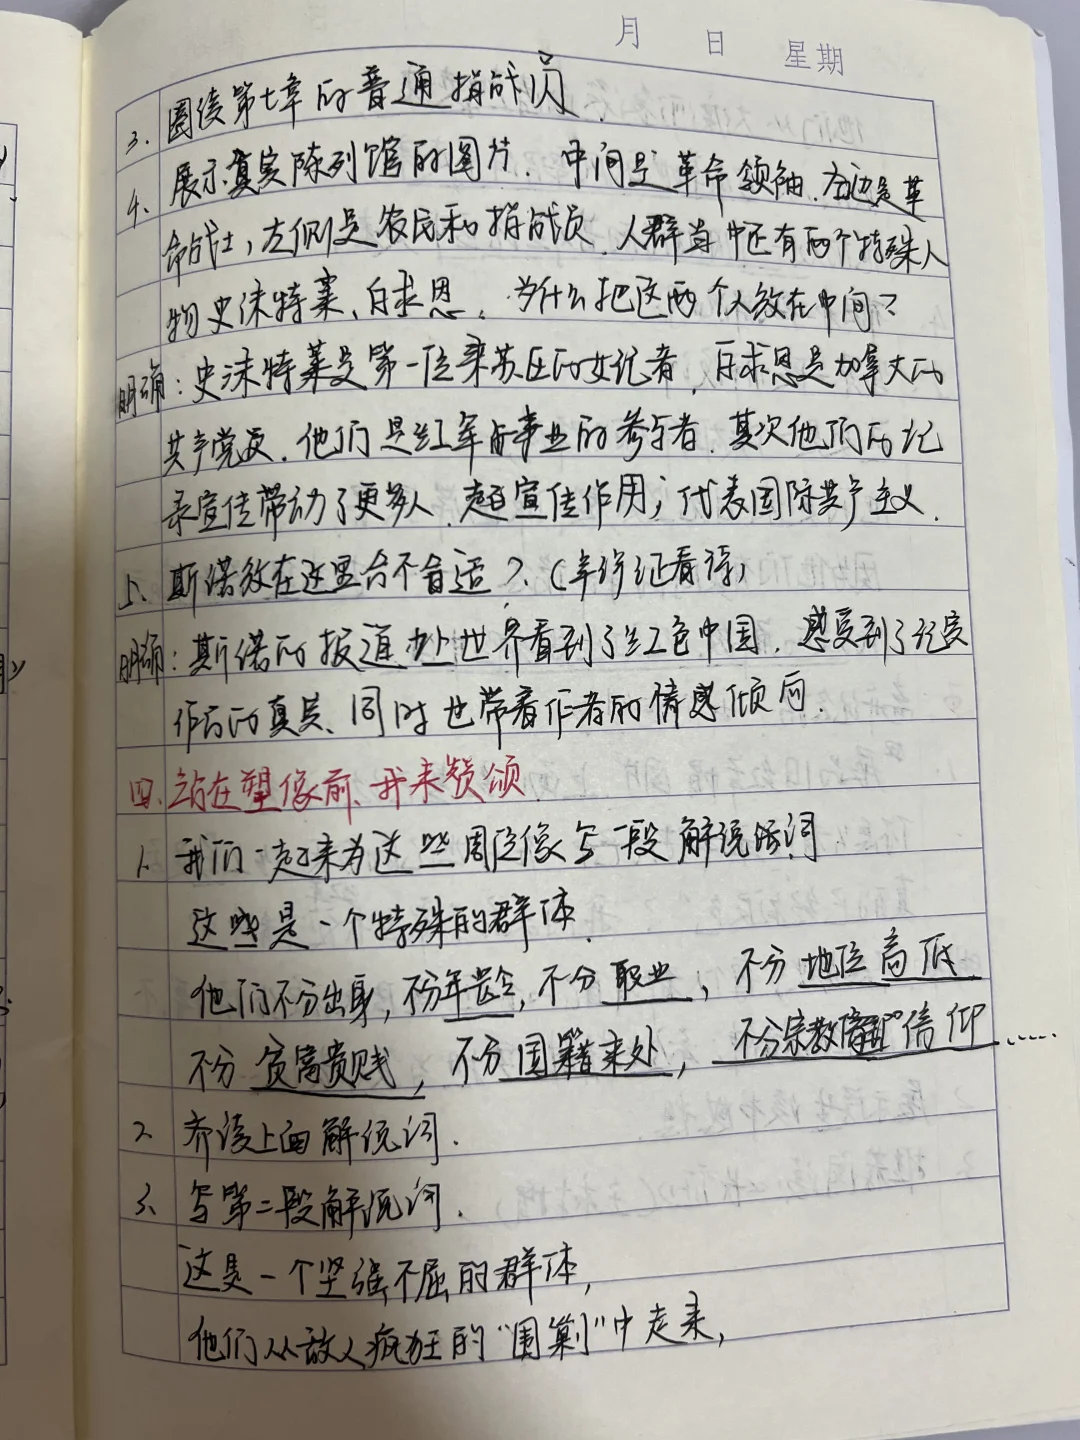 月 日 星期
3、圈读第七章的普通指战员
4、展示真实陈列馆的图片.中间是革命领袖.右边是革
命战士,左侧是农民和指战员.人群当中还有两个特殊人
物史沫特莱、白求恩.为什么把这两个人放在中间?
明确:史沫特莱是第一位来苏区的女记者.白求恩是加拿大的
共产党员.他们是红军事业的参与者.其次他们的记
录宣传带动了更多人.起到宣传作用;代表国际共产主义.
5、斯诺放在这里合不合适?(辛
明确:斯诺的报道让世界看到了红色中国.感受到了
作品的真实、同时也带着作者的情感倾向.
四、站在塑像前、我来赞颂
1、我们一起来为这些周臣像写一段解说词
这些是一个特殊的群体.
他们不分出身,不分年龄,不分职业,不分地位高低
不分贫富贵贱,不分国籍来处,不分宗教信仰……
2、齐读上面解说词.
3、写第二段解说词.
这是一个坚强不屈的群体,
他们从敌人疯狂的“围剿”中走来,